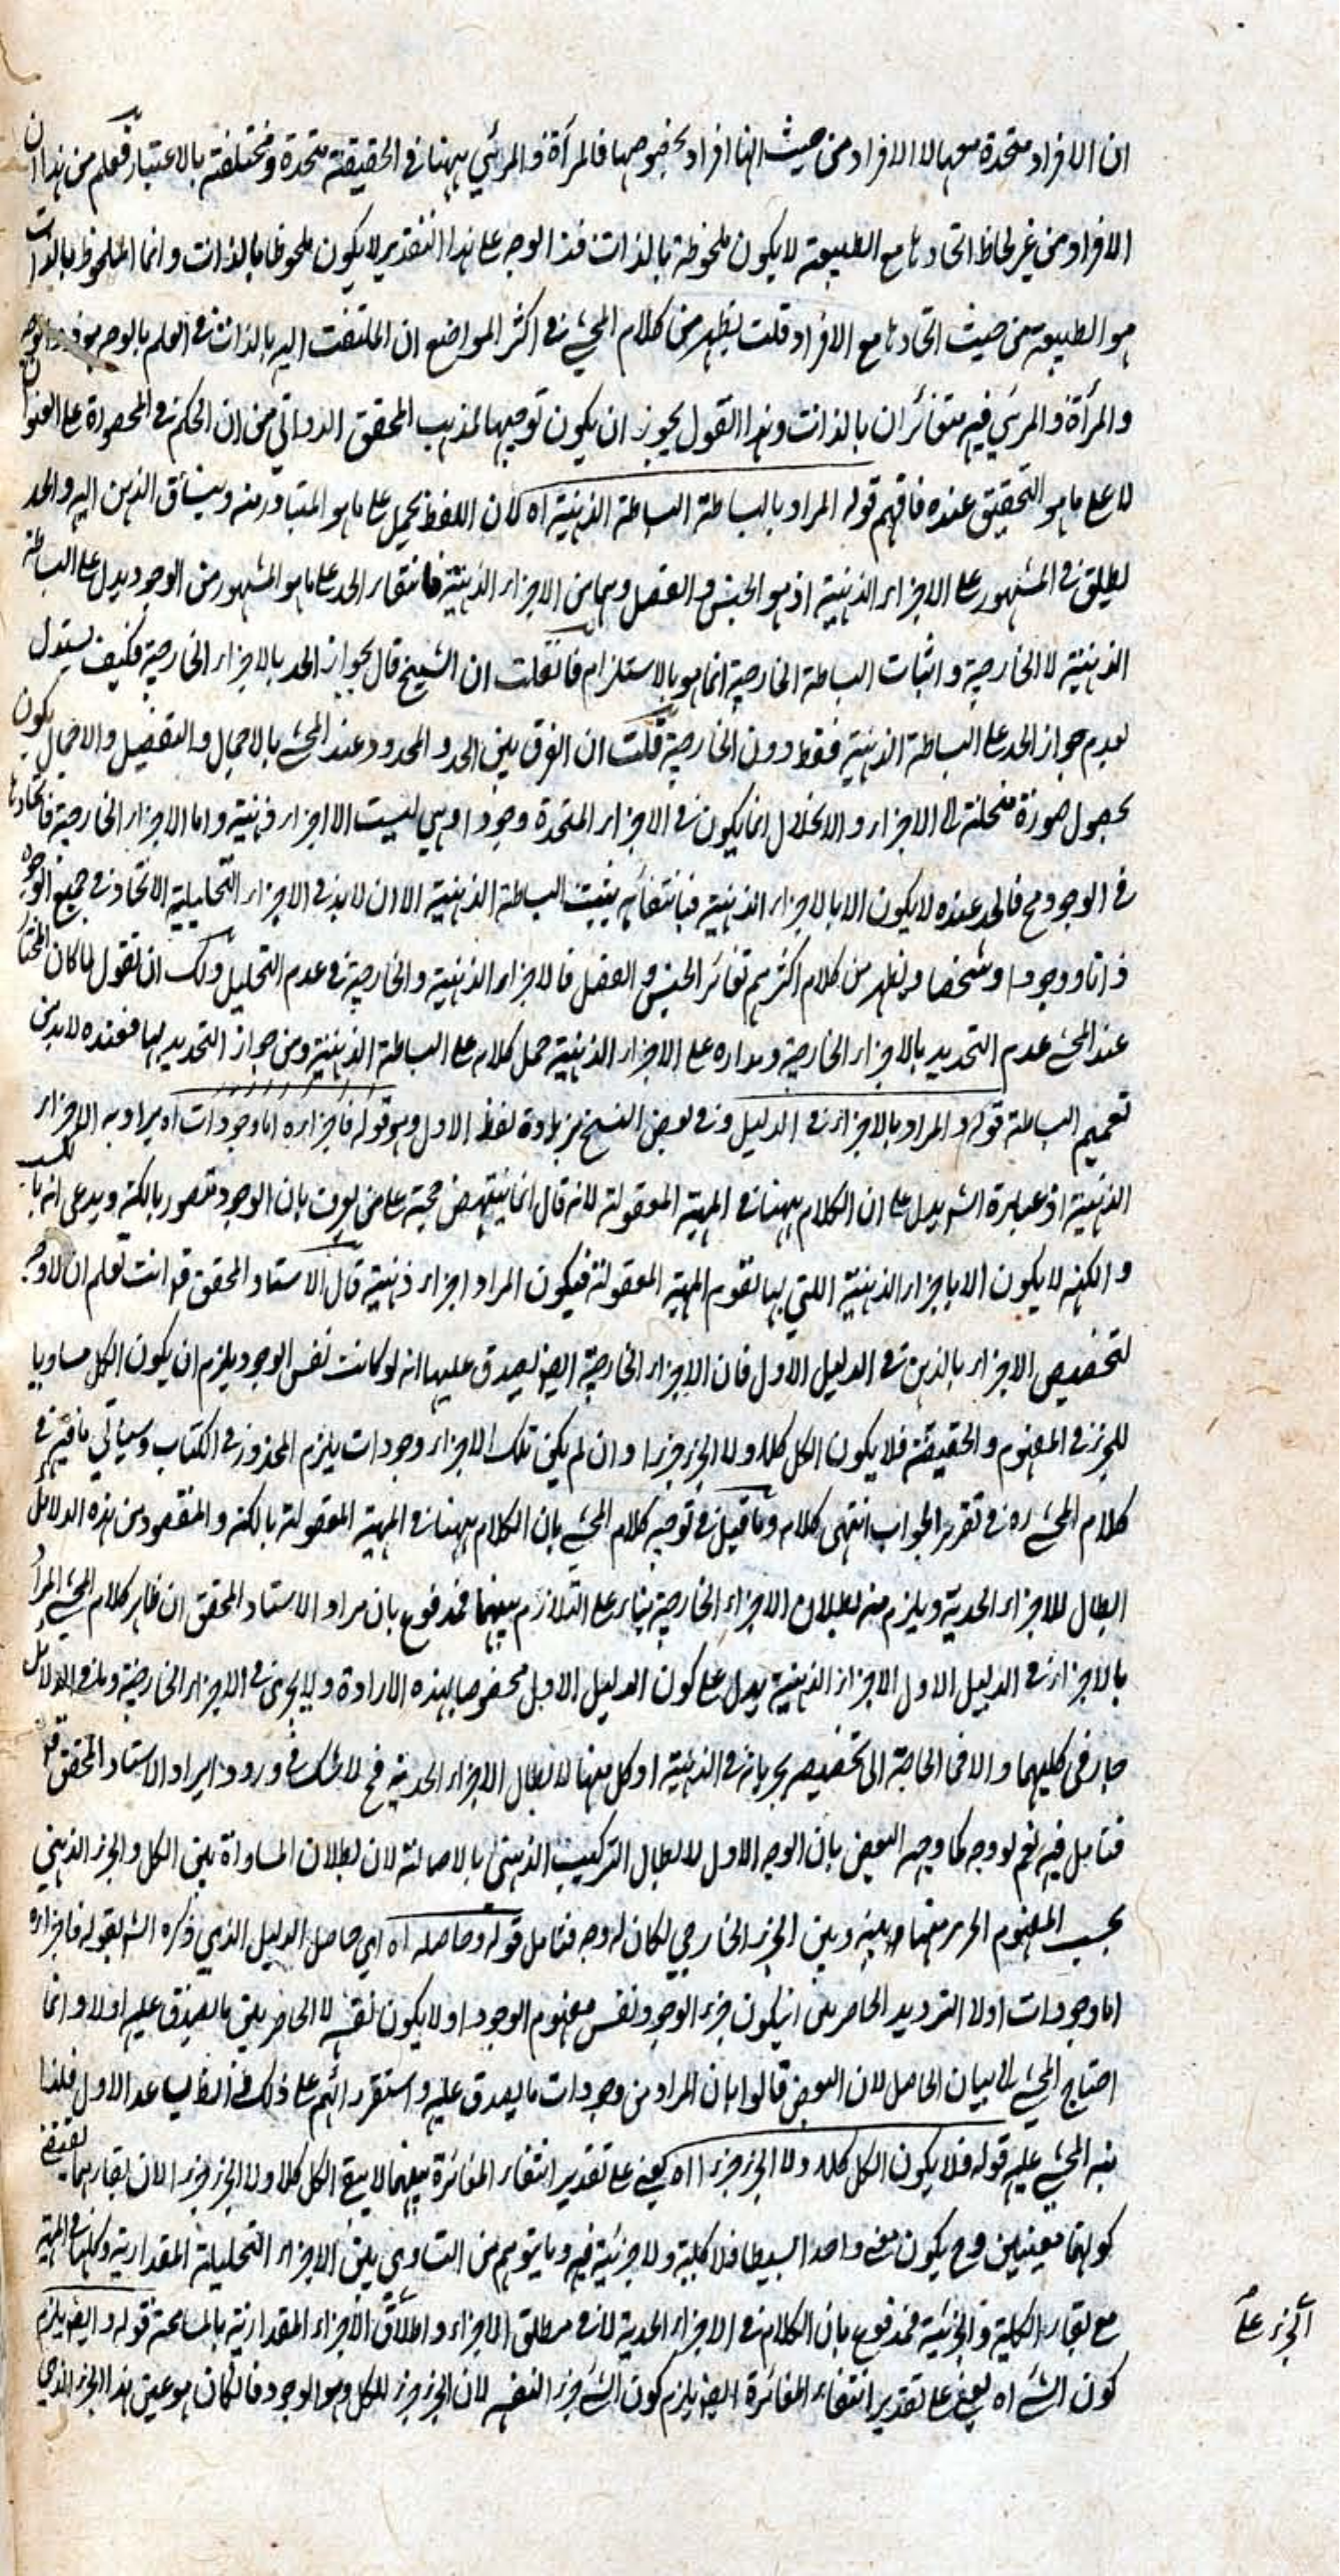 ان الافراد متحدة معها لا الافراد من حيث انها افراد بخصوصها فالمرآة والمرئي ههنا في الحقيقة متحدة ومختلفة بالاعتبار فعلم من هذا ان
الافراد من غير لحاظ اتحادها مع الطبيعة لا يكون ملحوظة بالذات فذ الوجه على هذا التقدير لا يكون ملحوظا بالذات وانما الملحوظ بالذات
هو الطبيعة من حيث اتحادها مع الافراد قلت يظهر من كلام المحشي في اكثر المواضع ان الملتفت اليه بالذات في العلم بالوجه هو ذو الوجه
والمرآة والمرئي فيه متغائران بالذات وهذا القول يجوز ان يكون توجيها لمذهب المحقق الدواني من ان الحكم في المحصورة على العنوان
لا على ما هو التحقيق عنده فافهم قوله المراد بالبساطة البساطة الذهنية اه لان اللفظ يحمل على ما هو المتبادر منه وينساق الذهن اليه والحد
يطلق في المشهور على الاجزاء الذهنية اذ هو الجنس والفصل وهما من الاجزاء الذهنية فانتفاء الحد على ما هو المشهور من الوجود يدل على البساطة
الذهنية لا الخارجية واثبات البساطة الخارجية انما هو بالاستلزام فانقلت ان الشيخ قال بجواز الحد بالاجزاء الخارجية فكيف يستدل
بعدم جواز الحد على البساطة الذهنية فقط دون الخارجية قلت ان الفرق بين الحد والمحدود عند المحشي بالاجمال والتفصيل والاجمال يكون
بحصول صورة منحلة الى الاجزاء والانحلال انما يكون في الاجزاء المتحدة وجودا وهي ليست الا اجزاء ذهنية واما الاجزاء الخارجية فاتحادها
في الوجود مح فالحد عنده لا يكون الا بالاجزاء الذهنية فبانتفائه يثبت البساطة الذهنية الا ان لا بد في الاجزاء التحليلية الاتحاد في جميع الوجوه
ذاتا ووجودا وشخصا ويظهر من كلام اكثرهم تغائر الجنس والفصل فالاجزاء الذهنية والخارجية في عدم التحليل ولك ان تقول لما كان المختار
عند المحشي عدم التحديد بالاجزاء الخارجية ومداره على الاجزاء الذهنية حمل كلامه على البساطة الذهنية ومن جواز التحديد بها فعنده لا بد من
تعميم البساطة قوله والمراد بالاجزاء في الدليل وفي بعض النسخ بزيادة لفظ الاول وهو قوله فاجزاءه اما وجودات اه يراد به الاجزاء
الذهنية اذ عبارة الشه يدل على ان الكلام ههنا في المهية المعقولة لانه قال انما ينتهض حجة على من يعرف بان الوجود متصور بالكنه ويدعى انه بالكسب
والكنه لا يكون الا باجزاء الذهنية اللتي بها تقوم المهية المعقولة فيكون المراد اجزاء ذهنية قال الاستاد المحقق قد انت تعلم ان لا وجه
لتخصيص الاجزاء بالذهن في الدليل الاول فان الاجزاء الخارجية ايضا يصدق عليها انه لو كانت نفس الوجود يلزم ان يكون الكل مساويا
للجزء في المفهوم والحقيقة فلا يكون الكل كلا ولا الجزء جزءا وان لم يكن تلك الاجزاء وجودات يلزم المحذور في الكتاب وسيأتي ما فيه في
كلام المحشي ره في تقرير الجواب انتهى كلامه وما قيل في توجيه كلام المحشي بان الكلام ههنا في المهية المعقولة بالكنه والمقصود من هذه الدلائل
ابطال الاجزاء الحدية ويلزم منه بطلان الاجزاء الخارجية بناء على التلازم بينهما فمدفوع بان مراد الاستاد المحقق ان ظاهر كلام المحشي المراد
بالاجزاء في الدليل الاول الاجزاء الذهنية يدل على كون الدليل الاول مخصوصا بهذه الارادة ولا يجري في الاجزاء الخارجية وهذه الدلائل
جار في كليهما والا فما الحاجة الى تخصيصه بجريانه في الذهنية او كل منها لابطال الاجزاء الحدية فح لا شك في ورود ايراد الاستاد المحقق قد
فتامل فيه نعم لو وجه كما وجه البعض بان الوجه الاول لابطال التركيب الذهني بالاصالة لان بطلان المساواة بين الكل والجزء الذهني
بحسب المفهوم اظهر منها بينه وبين الجزء الخارجي لكان له وجه فتامل قوله وحاصله اه اي حاصل الدليل الذي ذكره الشه بقوله فاجزاءه
اما وجودات اولا الترديد الحاصر بين ان يكون جزء الوجود نفس مفهوم الوجود او لا يكون نفسه لا الحاصر بين ما يصدق عليه اولا وانما
احتاج المحشي الى بيان الحاصل لان البعض قالوا بان المراد من وجودات ما يصدق عليه واستقر رائهم على ذلك في ابطال عد الاول فلذا
نبه المحشي عليه قوله فلا يكون الكل كلا ولا الجزء جزءا اه يعني على تقدير انتفاء المغائرة بينهما لا يبقى الكل كلا ولا الجزء جزءا لان بقاءهما يقتضي
كونهما معنيين وح يكون معنى واحدا بسيطا فلا كلية ولا جزئية فيه وما يتوهم من التساوي بين الاجزاء التحليلية المقدارية وكلها في المهية
مع بقاء الكلية والجزئية فمدفوع بان الكلام في الاجزاء الحدية لا في مطلق الاجزاء واطلاق الاجزاء المقدارية بالمسامحة قوله وايضا يلزم
كون الشئ اه يعني على تقدير انتفاء المغائرة ايضا يلزم كون الشئ جزء لنفسه لان الجزء جزء للكل وهو الوجود فالكان هو عين هذا الجزء الذي
الجزء على